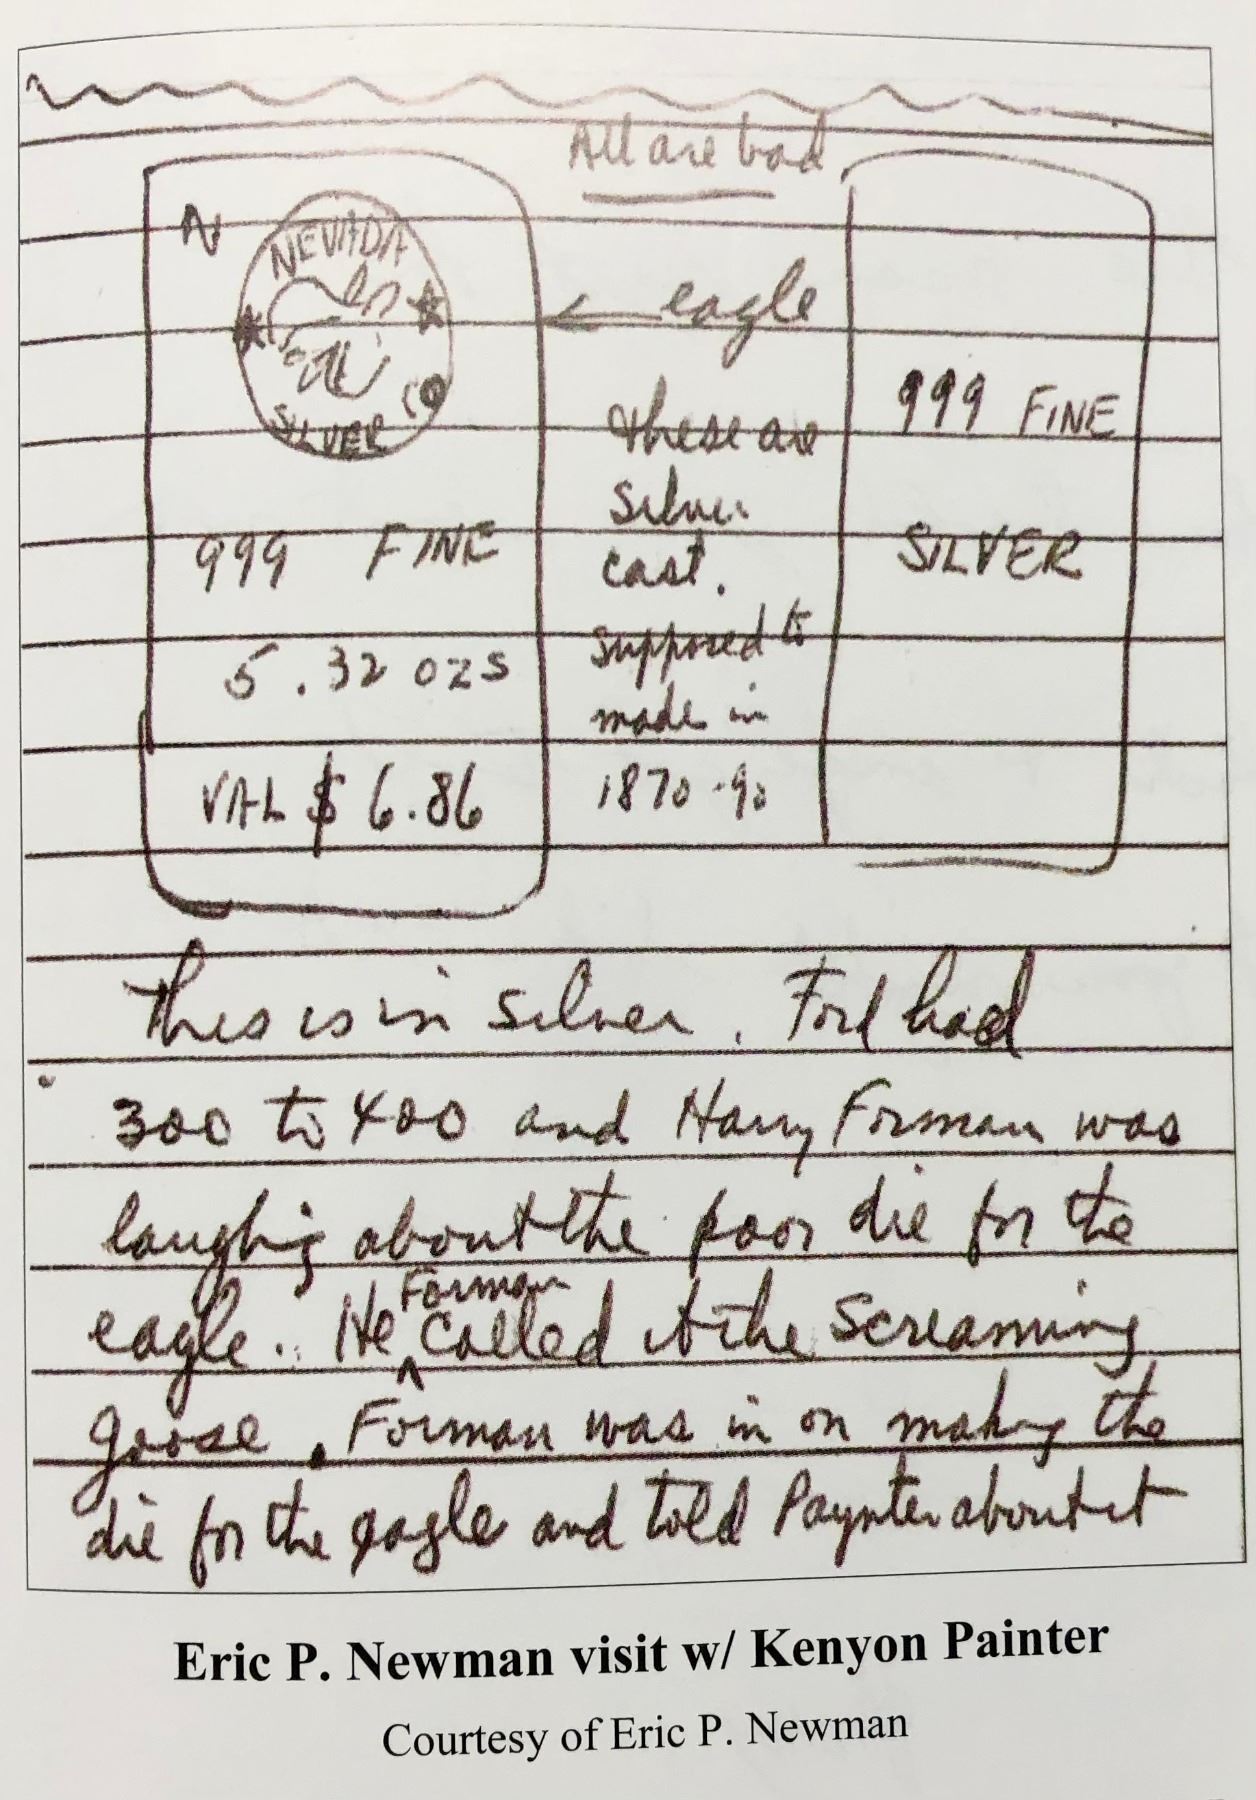 All are bad
N
NEVADA
SILVER CO
999 FINE
5.32 OZS
VAL $ 6.86
← eagle
these are
silver
cast.
supposed to
made in
1870-90
999 FINE
SILVER
This is in silver. Ford had
300 to 400 and Harry Forman was
laughing about the poor die for the
eagle.. He ^Forman called it the screaming
goose. Forman was in on making the
die for the eagle and told Paynter about it
Eric P. Newman visit w/ Kenyon Painter
Courtesy of Eric P. Newman